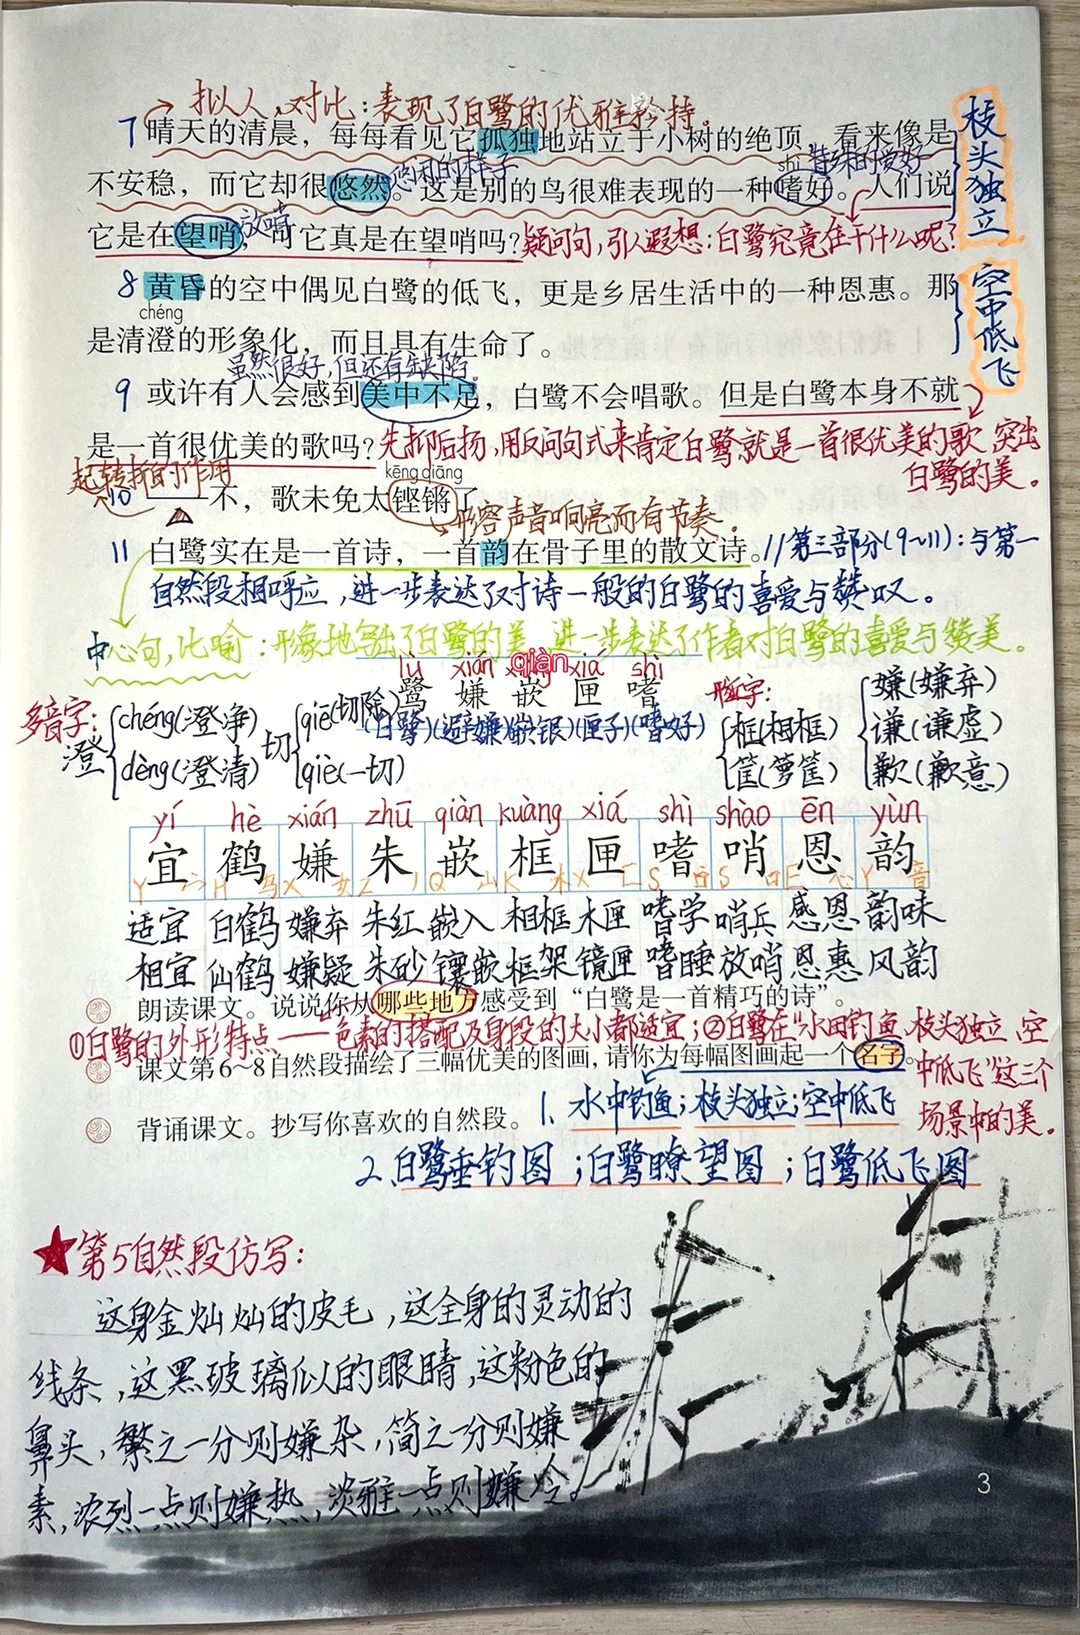 拟人,对比:表现了白鹭的优雅矜持。
7 晴天的清晨，每每看见它孤独地站立于小树的绝顶，看来像是
悠闲的样子
shì 特殊的爱好
不安稳，而它却很悠然。这是别的鸟很难表现的一种嗜好。人们说
放哨
它是在望哨，可它真是在望哨吗?疑问句,引人遐想:白鹭究竟在干什么呢?
枝头独立
8 黄昏的空中偶见白鹭的低飞，更是乡居生活中的一种恩惠。那
chéng
是清澄的形象化，而且具有生命了。
空中低飞
虽然很好,但还存缺陷。
9 或许有人会感到美中不足，白鹭不会唱歌。但是白鹭本身不就
是一首很优美的歌吗?先抑后扬,用反问句式来肯定白鹭就是一首很优美的歌,突出
白鹭的美。
起转折的作用
kēng qiāng
10 ——不，歌未免太铿锵了。
形容声音响亮而有节奏。
11 白鹭实在是一首诗，一首韵在骨子里的散文诗。//第三部分(9~11):与第一
自然段相呼应,进一步表达了对诗一般的白鹭的喜爱与赞叹。
中心句,比喻:形象地写出了白鹭的美,进一步表达了作者对白鹭的喜爱与赞美。
lù xián qiàn xiá shì
鹭 嫌 嵌 匣 嗜
(白鹭)(避嫌)(嵌银)(匣子)(嗜好)
多音字:
澄 chéng(澄净) dèng(澄清)
切 qiē(切除) qiè(一切)
形近字:
框(相框) 筐(箩筐)
嫌(嫌弃) 谦(谦虚) 歉(歉意)
yí hè xián zhū qiàn kuàng xiá shì shào ēn yùn
宜 鹤 嫌 朱 嵌 框 匣 嗜 哨 恩 韵
Y 宀 H 鸟 X 女 Z 丿 Q 山 K 木 X 匚 S S 口 E 心 Y 音
适宜 白鹤 嫌弃 朱红 嵌入 相框 木匣 嗜学 哨兵 感恩 韵味
相宜 仙鹤 嫌疑 朱砂 镶嵌 框架 镜匣 嗜睡 放哨 恩惠 风韵
朗读课文。说说你从哪些地方感受到“白鹭是一首精巧的诗”。
①白鹭的外形特点——色素的搭配及身段的大小都适宜;②白鹭在“水田钓鱼、枝头独立、空
中低飞”这三个
场景中的美。
课文第6~8自然段描绘了三幅优美的图画，请你为每幅图画起一个名字。
1. 水中钓鱼;枝头独立;空中低飞
背诵课文。抄写你喜欢的自然段。
2. 白鹭垂钓图;白鹭瞭望图;白鹭低飞图
★第5自然段仿写:
这身金灿灿的皮毛,这全身的灵动的
线条,这黑玻璃似的眼睛,这粉色的
鼻头,繁之一分则嫌杂,简之一分则嫌
素,浓烈一点则嫌热,淡雅一点则嫌冷。
3